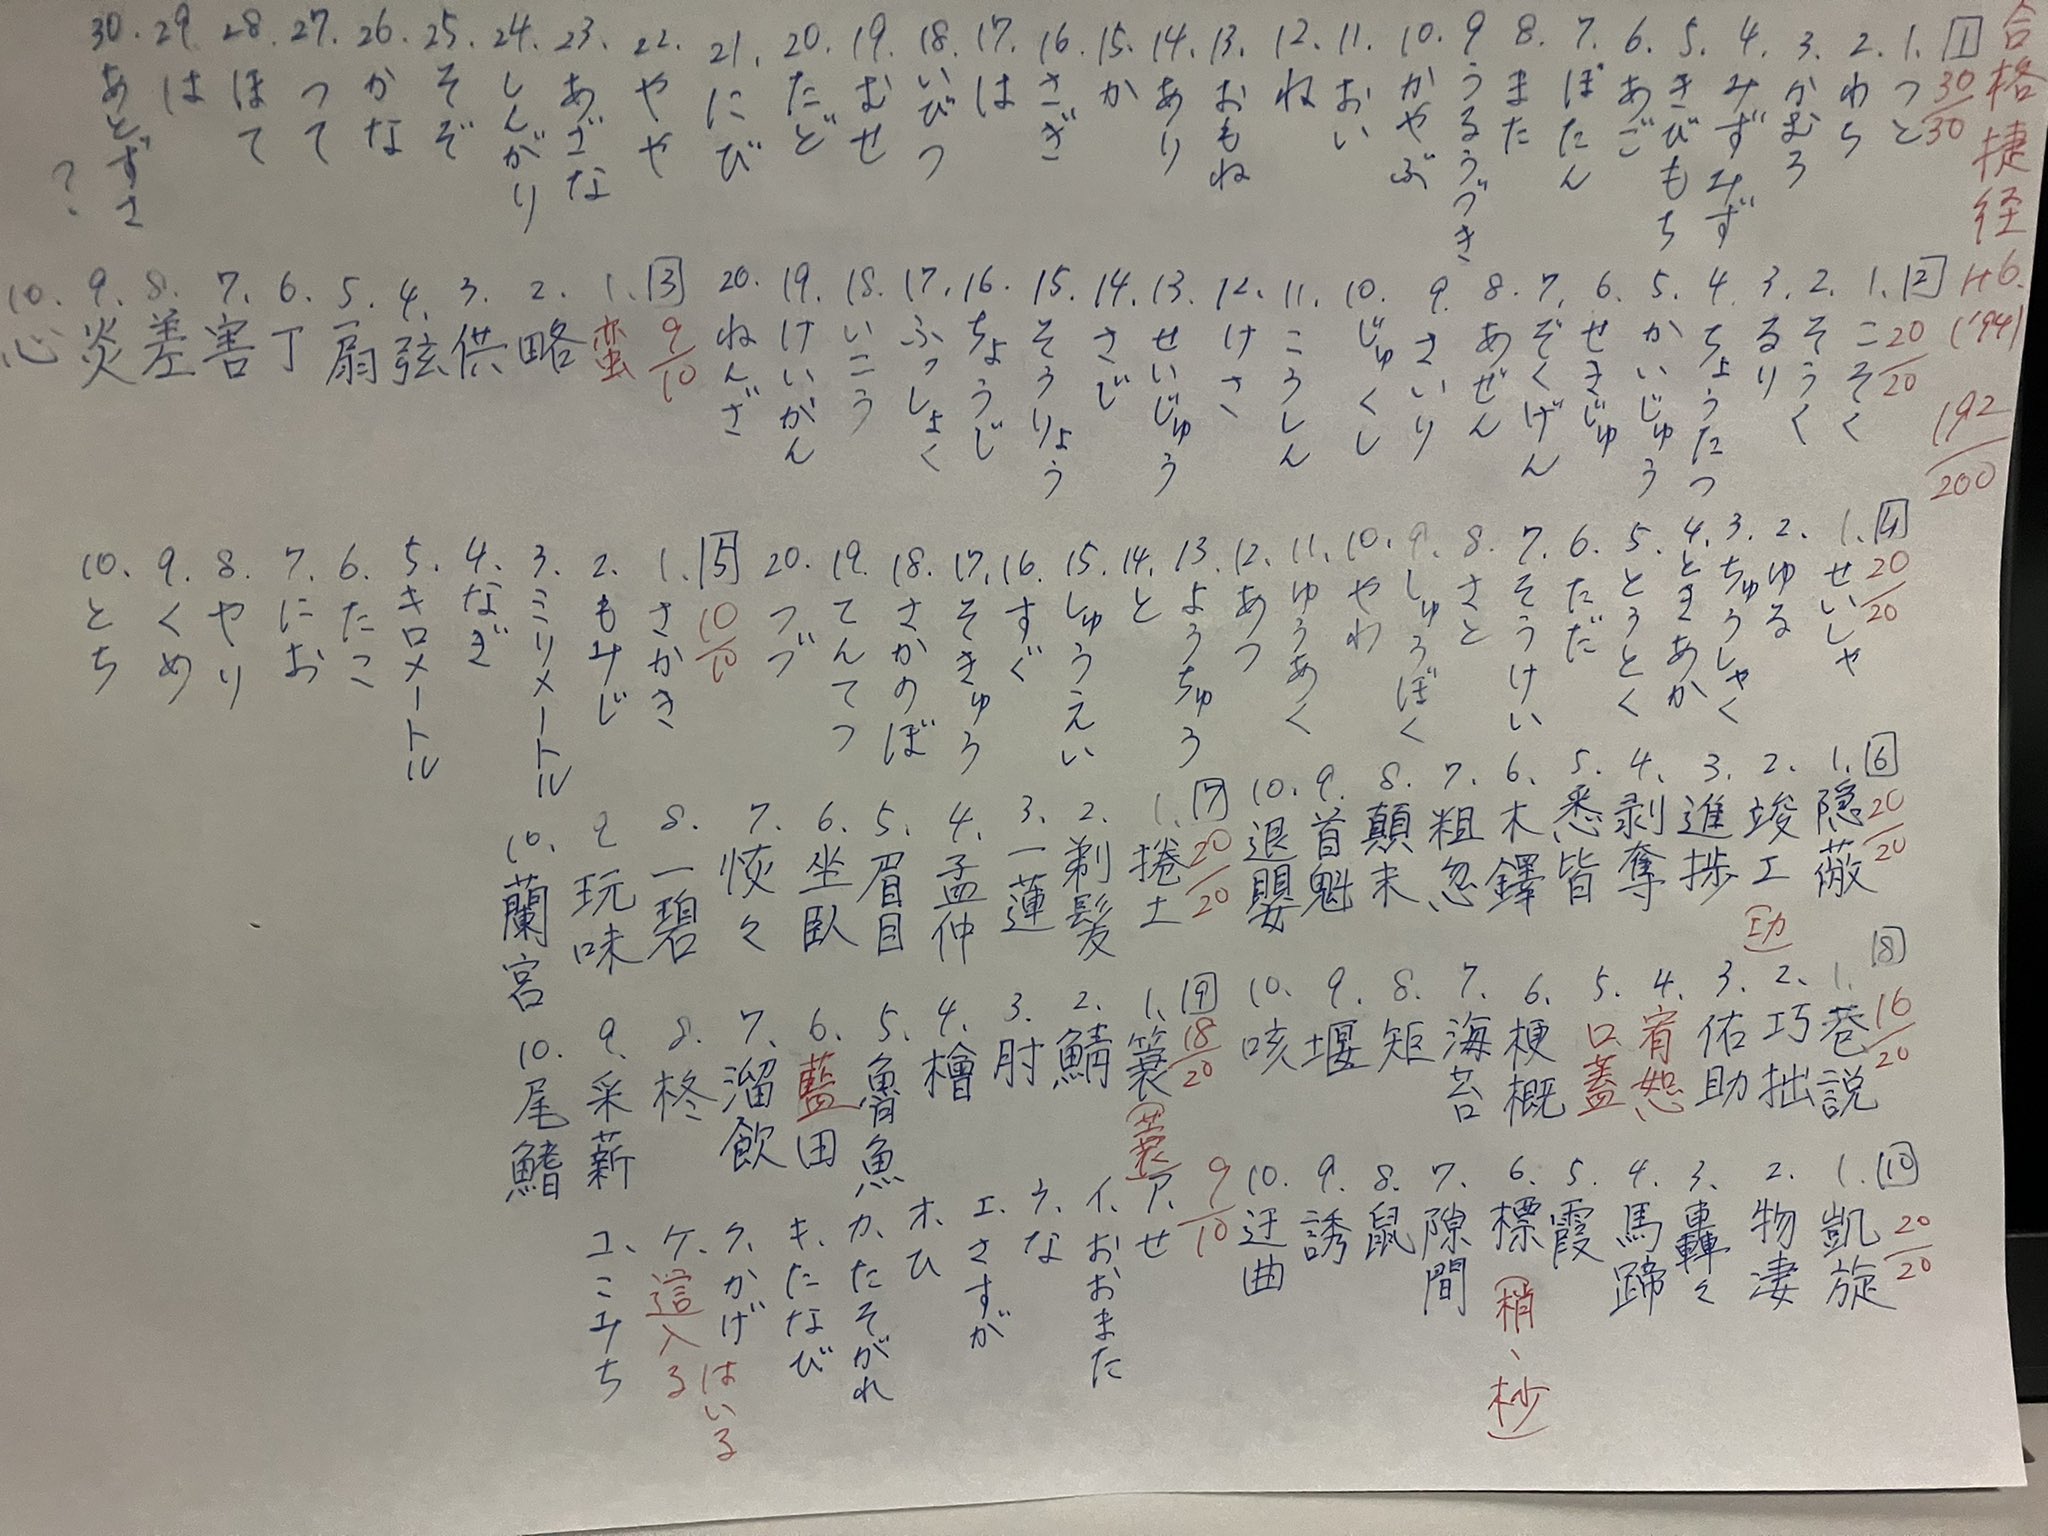 合格捷経 H6.('94) 192/200
1 30/30
1. つと
2. わち
3. かむろ
4. みずみず
5. きびもち
6. あご
7. ぼたん
8. また
9. うるうづき
10. かやぶ
11. おい
12. ね
13. おもね
14. あり
15. か
16. さぎ
17. は
18. いびつ
19. むせ
20. たど
21. にび
22. やや
23. あざな
24. しんがり
25. そぞ
26. かな
27. つて
28. ほて
29. は
30. あとずさ ?
2 20/20
1. こそく
2. そうく
3. るり
4. ちょうたつ
5. かいじゅう
6. せきじゅ
7. ぞくげん
8. あぜん
9. さいり
10. じゅくし
11. こうしん
12. けさ
13. せいじゅう
14. さじ
15. そうりょう
16. ちょうじ
17. ふっしょく
18. いこう
19. けいがん
20. ねんざ
3 9/10
1. 蛮
2. 略
3. 供
4. 弦
5. 扇
6. 丁
7. 害
8. 差
9. 炎
10. 心
4 20/20
1. せいしゃ
2. ゆる
3. ちゅうしゃく
4. ときあか
5. とうとく
6. ただ
7. そうけい
8. さと
9. しゅうぼく
10. やわ
11. ゆうあく
12. あつ
13. ようちゅう
14. と
15. しゅうえい
16. すぐ
17. そきゅう
18. さかのぼ
19. てんてつ
20. つづ
5 10/10
1. さかき
2. もみじ
3. ミリメートル
4. なぎ
5. キロメートル
6. たこ
7. にお
8. やり
9. くめ
10. とち
6 20/20
1. 隠蔽
2. 竣工 (功)
3. 進捗
4. 剥奪
5. 悉皆
6. 木鐸
7. 粗忽
8. 顛末
9. 首魁
10. 退嬰
7 20/20
1. 捲土
2. 剃髪
3. 一蓮
4. 孟仲
5. 眉目
6. 坐臥
7. 恢々
8. 一碧
9. 玩味
10. 蘭宮
8 16/20
1. 巷説
2. 巧拙
3. 佑助
4. 宥恕
5. 口蓋
6. 梗概
7. 海苔
8. 矩
9. 堰
10. 咳
9 18/20
1. 簑 (蓑)
2. 鯖
3. 肘
4. 檜
5. 魚
6. 藍田
7. 溜飲
8. 柊
9. 采薪
10. 尾鰭
10 20/20
1. 凱旋
2. 物凄
3. 轟々
4. 馬蹄
5. 霞
6. 標 (梢、杪)
7. 隙間
8. 鼠
9. 誘
10. 迂曲
9/10
ア. せ
イ. おおまた
ウ. な
エ. さすが
オ. ひ
カ. たそがれ
キ. たなび
ク. かげ
ケ. 這入る はいる
コ. こみち